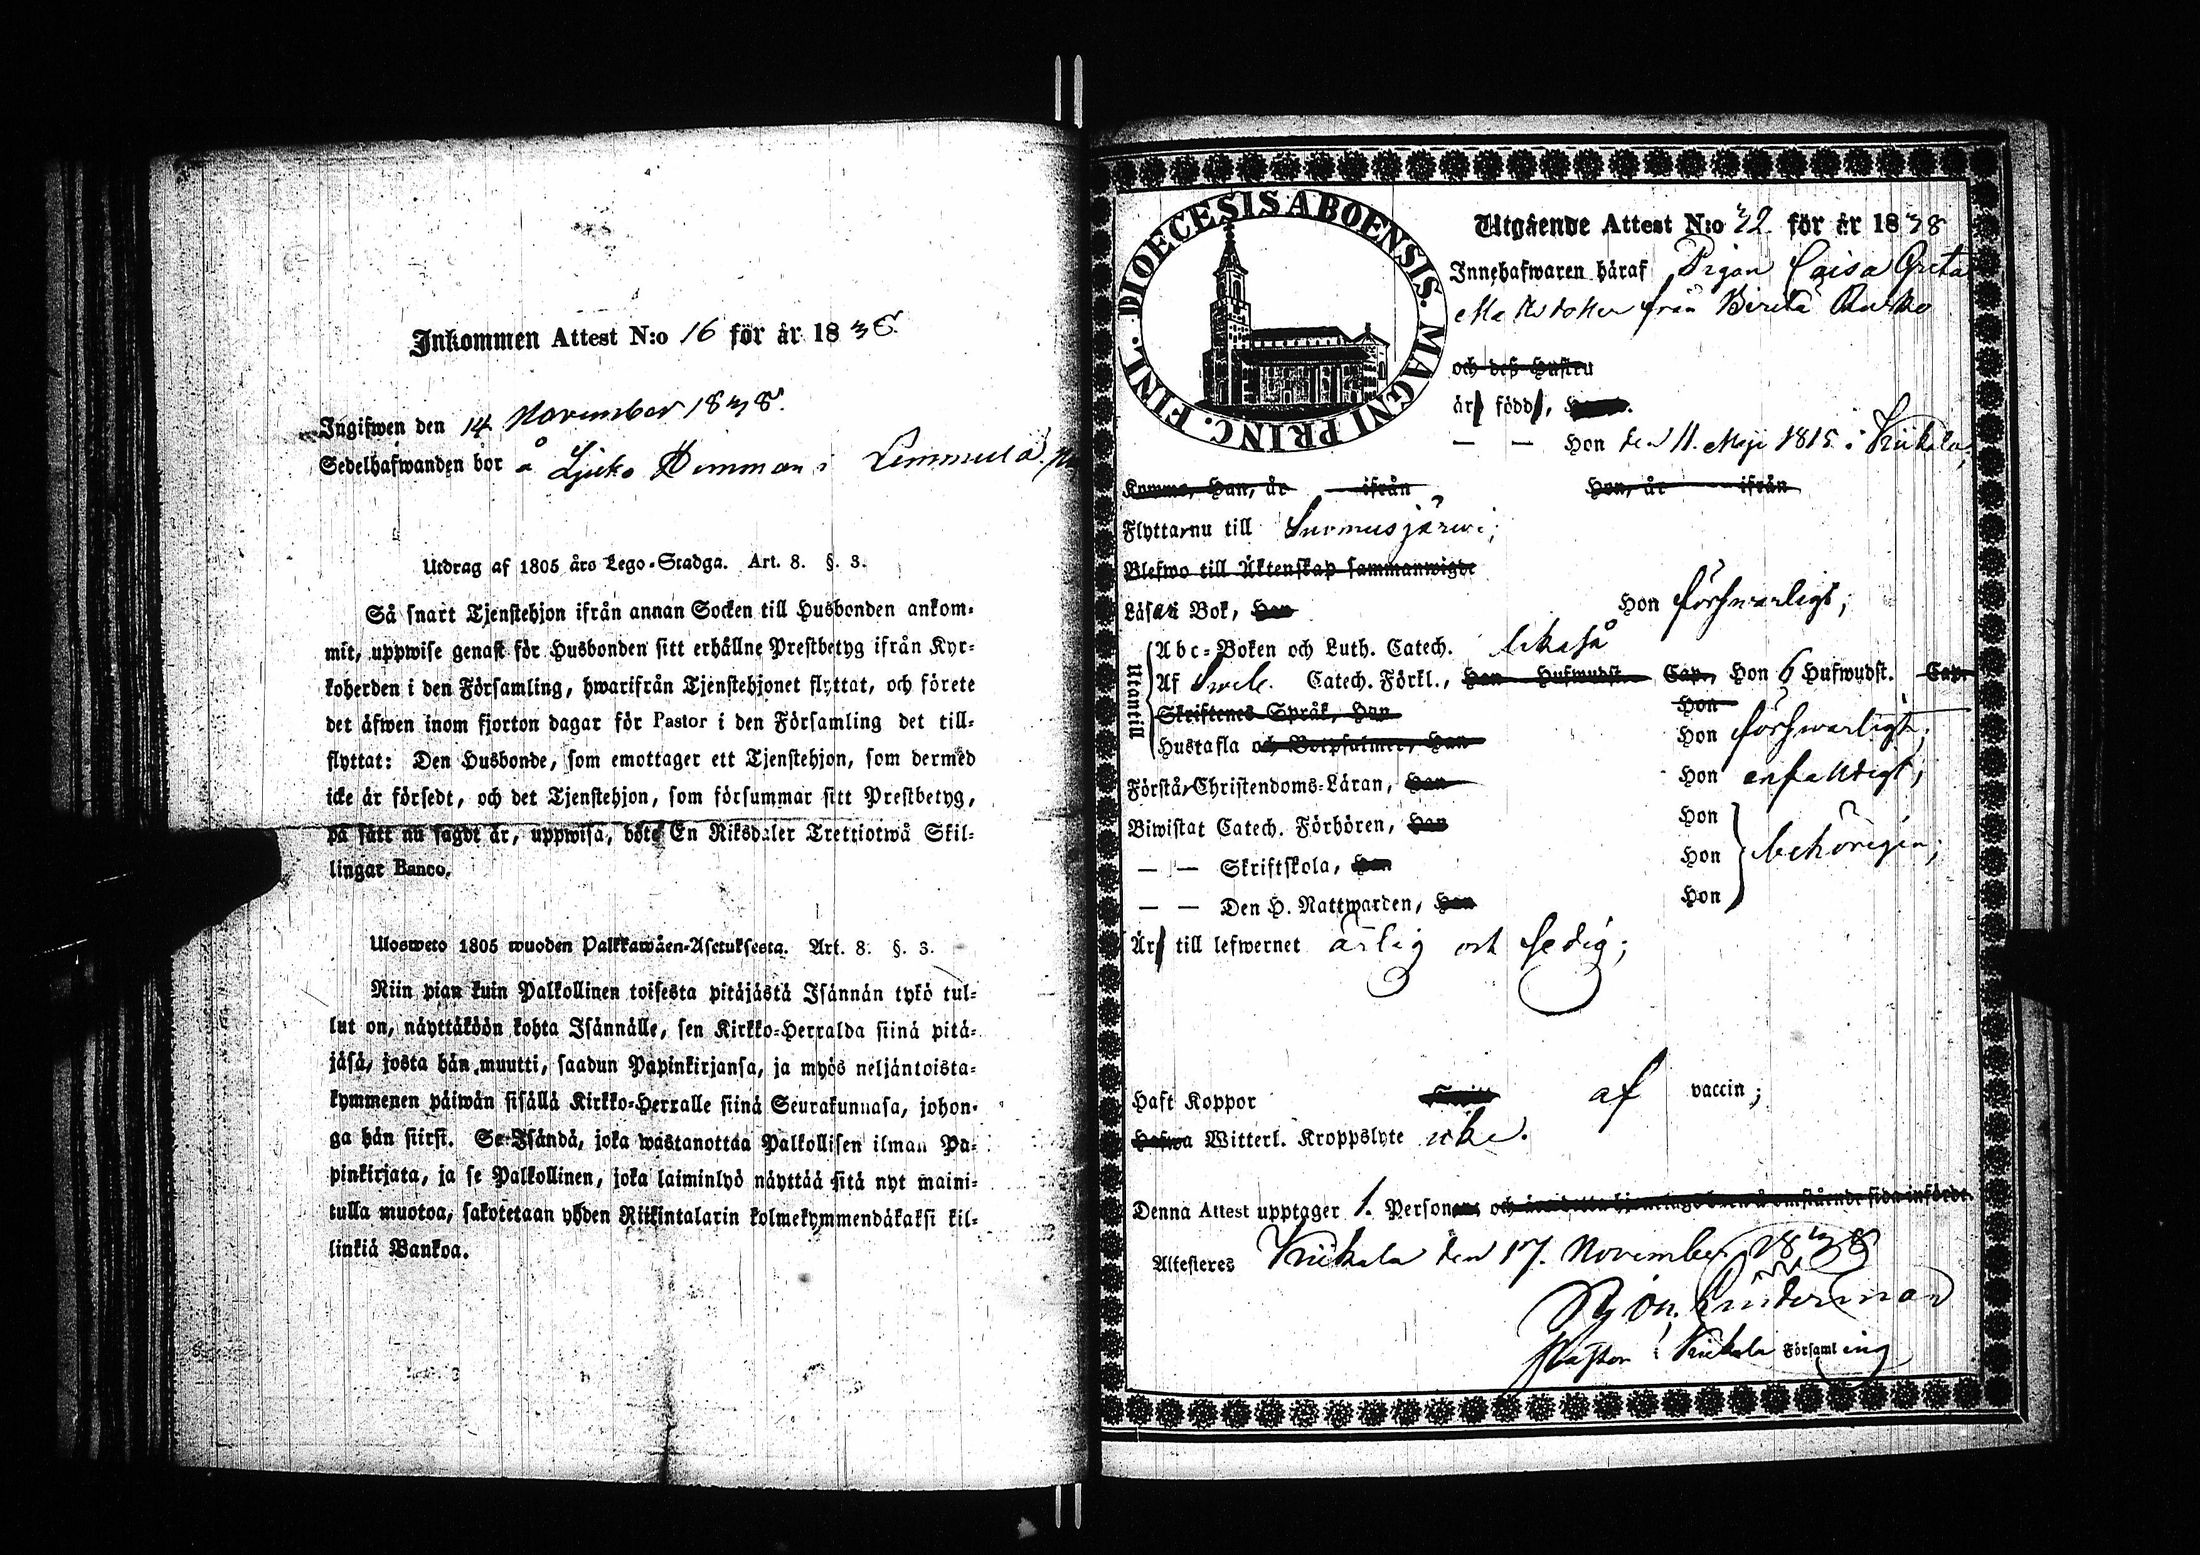 Inkommen Attest N:o 16 för år 1838
Ingifwen den 14 November 1838.
Sedelhafwanden bor å Lemmula
Utdrag af 1805 års Lego-Stadga. Art. 8. §. 3.
Så snart Tjenstehjon ifrån annan Socken till Husbonden ankom-
mit, uppwise genast för Husbonden sitt erhållne Prestbetyg ifrån Kyr-
koherden i den Församling, hwarifrån Tjenstehjonet flyttat, och förete
det äfwen inom fjorton dagar för Pastor i den Församling det till-
flyttat: Den Husbonde, som emottager ett Tjenstehjon, som dermed
icke är försedt, och det Tjenstehjon, som försummar sitt Prestbetyg,
på sätt nu sagdt är, uppwisa, böte En Riksdaler Trettiotwå Skil-
lingar Banco.
Ulosweto 1805 wuoden Palkkawäen-Asetuksesta. Art. 8. §. 3.
Niin pian kuin Palkollinen toisesta pitäjästä Isännän tykö tul-
lut on, näyttäköön kohta Isännälle, sen Kirkko-Herralda siinä pitä-
jäsä, josta hän muutti, saadun Papinkirjansa, ja myös neljäntoista-
kymmenen päiwän sisällä Kirkko-Herralle siinä Seurakunnasa, johon-
ga hän siirsi. Se Isändä, joka wastanottaa Palkollisen ilman Pa-
pinkirjata, ja se Palkollinen, joka laiminlyö näyttää sitä nyt maini-
tulla muotoa, sakotetaan yhden Riikintalarin kolmekymmendäkaksi kil-
linkiä Bankoa.
DIOECESIS ABOENSIS. MAGNI PRINC. FINL.
Utgående Attest N:o 32 för år 1838
Innehafwaren häraf Pigan Caisa Greta
från
och deß Hustru
är född,
— — Hon den 11. Maji 1815 i Kiikala;
Komne, Han, år ifrån Hon, år ifrån
Flyttar nu till Suomusjärwi;
Blefwo till Äktenskap sammanwigde
Läser i Bok, Han Hon förswarligt;
Utantill
Abc-Boken och Luth. Catech. likaså
Af Sweb. Catech. Förkl., Han Hufwudst. Cap., Hon 6 Hufwudst. Cap.
Skriftenes Språk, Han Hon
Hustafla och Botpsalmer, Han Hon förswarligt;
Förstår Christendoms-Läran, Han Hon enfaldigt;
Biwistat Catech. Förhören, Han Hon
— — Skriftskola, Han Hon behörigen;
— — Den H. Nattwarden, Han Hon
Är till lefwernet ärlig och sedig;
Haft Koppor af vaccin;
Hafwa Witterl. Kroppslyte icke.
Denna Attest upptager 1. Person
Attesteres Kiikala den 17. November 1838
Linderman
Pastor i Kiikala Församling